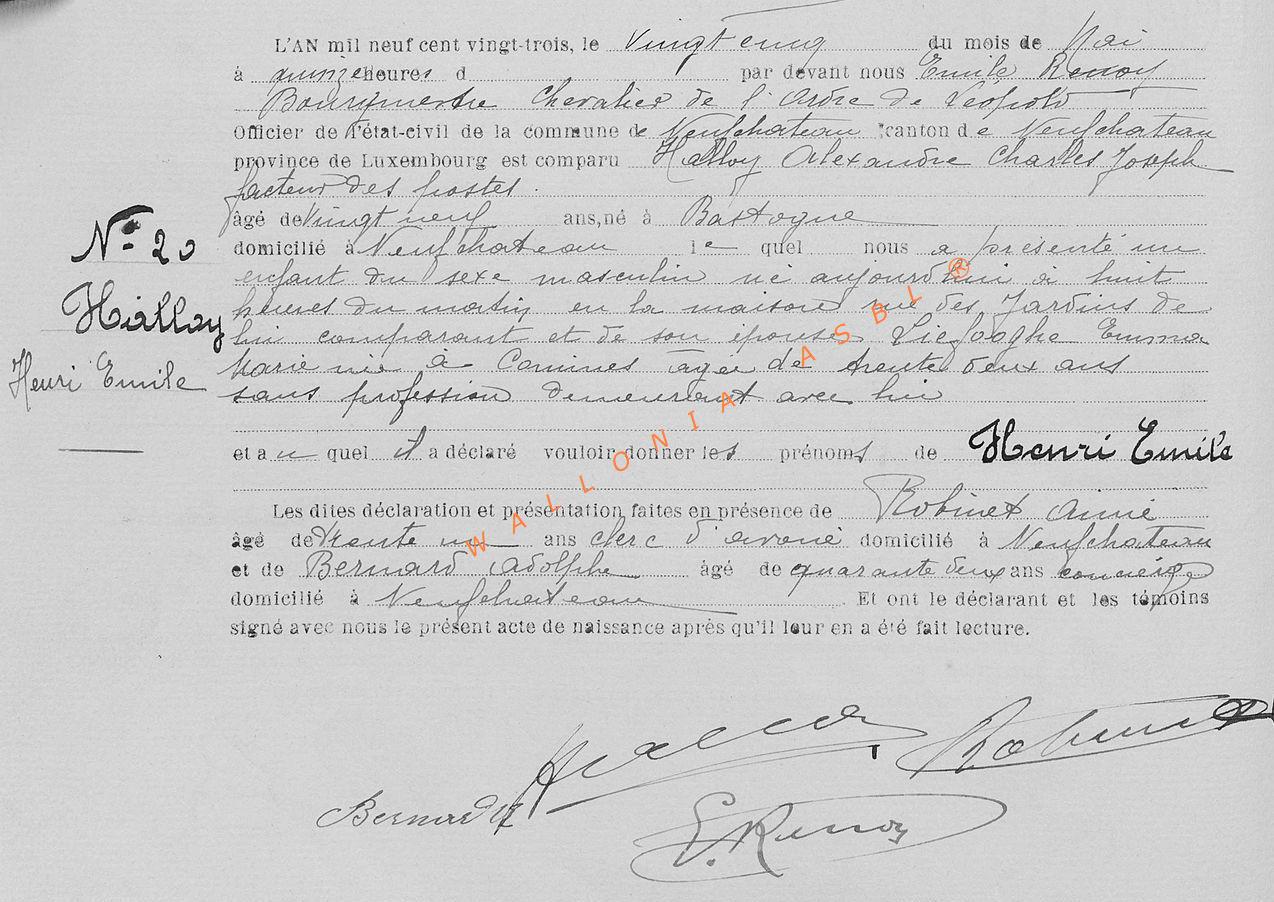 L'AN mil neuf cent vingt-trois, le vingt cinq du mois de Mai
à quinze heures d par devant nous Emile Renoy
Bourgmestre Chevalier de l'Ordre de Léopold
Officier de l'état-civil de la commune de Neufchateau canton de Neufchateau
province de Luxembourg est comparu Halloy Alexandre Charles Joseph
facteur des postes.
âgé de vingt neuf ans, né à Bastogne
domicilié à Neufchateau le quel nous a présenté un
N° 20
enfant du sexe masculin né aujourd'hui à huit
Halloy
heures du matin en la maison rue des Jardins de
lui comparant et de son épouse Liefooghe Emma
Henri Emile
Marie née à Comines âgée de trente deux ans
sans profession demeurant avec lui
et au quel il a déclaré vouloir donner les prénoms de Henri Emile
Les dites déclaration et présentation faites en présence de Robinet Aimé
âgé de trente un ans clerc d'avoué domicilié à Neufchateau
et de Bernard Adolphe âgé de quarante deux ans concierge
domicilié à Neufchateau Et ont le déclarant et les témoins
signé avec nous le présent acte de naissance après qu'il leur en a été fait lecture.
WALLONIA ASBL ®
Halloy Robinet
Bernard
E. Renoy